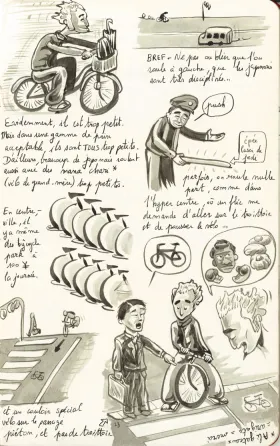 Evidemment, il est trop petit.
Mais dans une gamme de prix
acceptable, ils sont TOUS trop petits.
D'ailleurs, beaucoup de japonais roulent
aussi avec des mama chara *
(vélo de grand-mère) trop petits.
En centre-
ville, il
y a même
des bicycle
park à
100 ¥
la journée.
et un couloir spécial
vélo sur le passage
piéton, et pas de trottoir
BREF - Ne pas oublier que l'on
roule à gauche, que les japonais
sont très disciplinés...
push
épée
laser de
jedi
parfois, on roule nulle
part, comme dans
l'hyper centre, où un flic me
demande d'aller sur le trottoir
et de pousser le vélo...